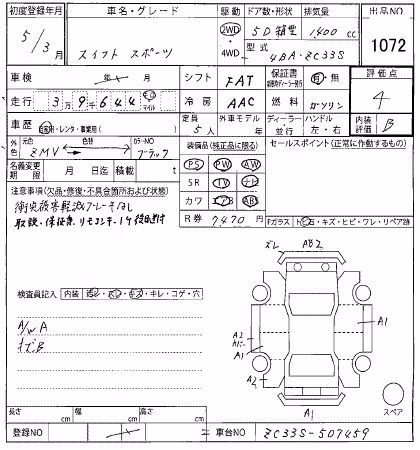 初度登録年月 車名・グレード 駆動 ドア数・形状 排気量 出品NO
5/3月 スイフト スポーツ 2WD・4WD 5D箱型 1400cc 1072
型式 4BA-ZC33S
車検 年 月 シフト FAT 保証書 有・無 評価点
走行 3万9千644 キロ マイル 冷房 AAC 燃料 ガソリン 4
車歴 自家用・レンタ・事業用( ) 定員 5人 外車モデル 年 ディーラー・並行 ハンドル 左・右 内装評価 B
外色 元色 ZMV 色替 カラーNO ブラック 装備品(純正品に限る) セールスポイント(正常に作動するもの)
名義変更期限 月 日迄 積載 t PS PW AW
注意事項(欠品・修復・不具合箇所および状態) SR TV ナビ
衝突被害軽減ブレーキなし カワ エアB ABS
取説、保証書、リモコンキー1ケ後日送付 R券 7470円 Fガラス トビ石・キズ・ヒビ・ワレ・リペア跡
ズレ AB2
検査員記入 内装 キレ・コゲ・穴
A/W A
A2
A1
A1
A2
A1
スペア
長さ cm 幅 cm 高さ cm
登録NO 車台NO ZC33S-507459